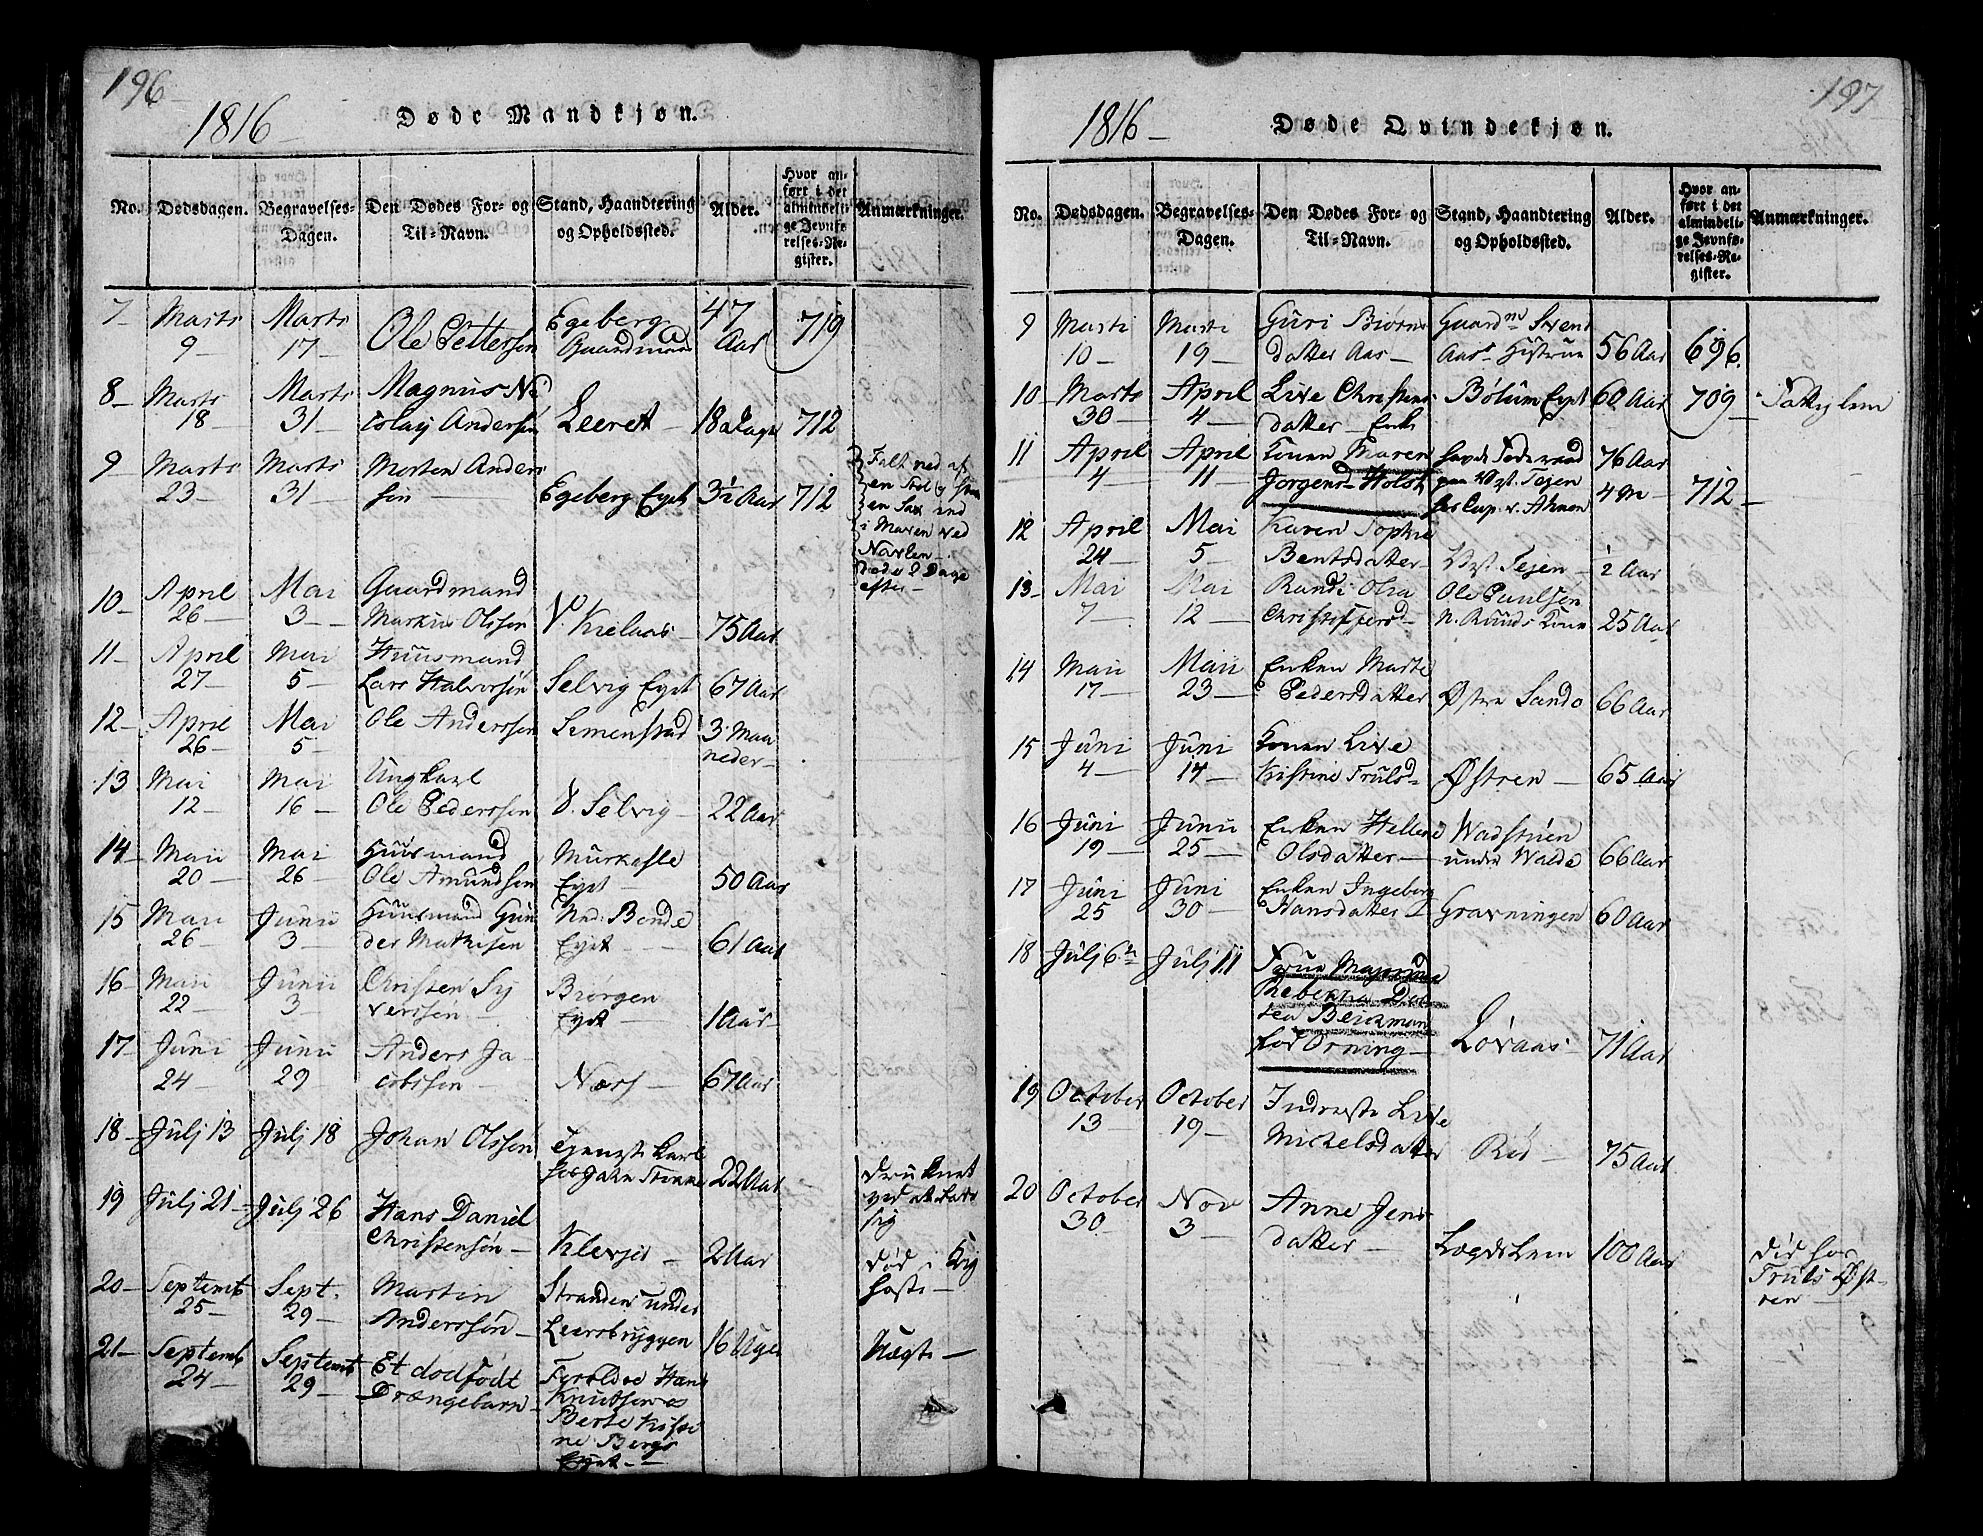 196
1816
Døde Mandkjøn.
No.
Dødsdagen.
Begravelses-
Dagen.
Den Dødes For- og
Til-Navn.
Stand, Haandtering
og Opholdssted.
Alder.
Hvor an-
ført i det
almindeli-
ge Jevnfø-
relses-Re-
gister.
Anmærkninger.
7 Marts 9 Marts 17 Ole Pettersen Egeberg Gaardmand 47 Aar 719
8 Marts 18 Marts 31 Magnus Ni
colay Andersen Leeret 18 Dage 712
9 Marts 23 Marts 31 Morten Anders
sen Egeberg Eyet 3½ Aar 712
Falt ned af
en Stol
en Sax ind
i Maven ved
Navlen
døde 2 Dage
efter
10 April 26 Mai 3 Gaardmand
Markus Olssøn V. Kielaas 75 Aar
11 April 27 Mai 5 Huusmand
Lars Halvorsøn Selvig Eyet 67 Aar
12 April 26 Mai 5 Ole Anderssøn Semenstad 3 Maa
neder
13 Mai 12 Mai 16 Ungkarl
Ole Pederssøn V. Selvig 22 Aar
14 Maii 20 Mai 26 Huusmand
Ole Amundsen Murkasle
Eyet 50 Aar
15 Maii 26 Junii 3 Huusmand Gun
der Mathisen Ned: Bonde
Eyet 61 Aar
16 Maii 22 Junii 3 Christen Sy
verssøn Biorgen
Eyet 1 Aar
17 Juni 24 Junii 29 Anders Ja
cobssøn Nærs 67 Aar
18 Julj 13 Julj 18 Johan Olssøn Tjeneste Karl
22 Aar
druknet
ved at bade
sig
19 Julj 21 Julj 26 Hans Daniel
Christensøn Klevjer 2 Aar
død i Kig
hoste
20 Septemb 25 Sept. 29 Martin
Anderssøn Stranden under
Leersbryggen 16 Uger
21 Septemb 24 Septemb 29 Et dødfødt
Drængebarn
Uægte
Hans
Knudsen og
Berte Kisti
ne Bergs
Eyet
197
1816
Døde Qvindekjøn.
No.
Dødsdagen.
Begravelses-
Dagen.
Den Dødes For- og
Til-Navn.
Stand, Haandtering
og Opholdssted.
Alder.
Hvor an-
ført i det
almindeli-
ge Jevnfø-
relses-Re-
gister.
Anmærkninger.
9 Marti 10 Marti 19 Guri Biørns
datter Aas Gaardm Svend
Aas Hustrue 56 Aar 696
10 Marts 30 April 4 Live Christens
datter Enke Bølum Eyet 60 Aar 709
11 April 4 April 11 Konen Maren
Jorgensd Holst 76 Aar
4 M 712
havde Føderaad
paa Vest. Tejen
12 April 24 Mai 5 Karen Sophie
Bentsdatter Vest. Tejen ½ Aar
13 Mai 7 Mai 12 Randi Olea
Christoffersd Ole Paulsen
n. Ruuds Kone 25 Aar
14 Maii 17 Maii 23 Enken Marte
Pedersdatter Østre Sando 66 Aar
15 Juni 4 Juni 14 Konen Live
Kristine Trulsd Østren 65 Aar
16 Juni 19 Junii 25 Enken Hellene
Olsdatter Wadstuen
under Walde 66 Aar
17 Juni 25 Juni 30 Enken Ingeborg
Hansdatter Gravningen 60 Aar
18 Julj 6te Julj 11 Frue Magrete
Rebekka Doro
tea Beichman
fød Orning Lovaas 71 Aar
19 October 13 October 19 Inderste Live
Michelsdatter Rød 75 Aar
20 October 30 Nov 3 Anne Jens
datter Lægdslem 100 Aar
død hos
Truls Øst
ren